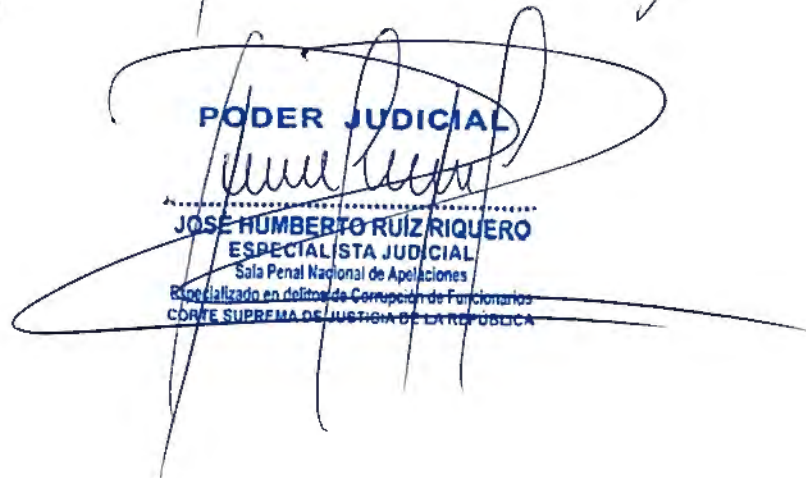 PODER JUDICIAL
JOSÉ HUMBERTO RUÍZ RIQUERO
ESPECIALISTA JUDICIAL
Sala Penal Nacional de Apelaciones
Especializado en delitos de Corrupción de Funcionarios
CORTE SUPREMA DE JUSTICIA DE LA REPÚBLICA